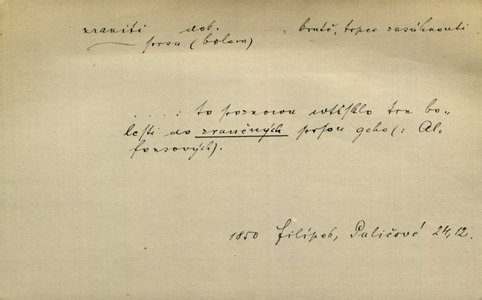 zraniti dok.
prsa (bolem) : krutě, trpce zasáhnouti
. . . . . : to poznovu vtisklo trn bo-
lesti do zraněných prsou geho (: Al-
fonsových).
1850 Filípek, Paličové 24, 12.